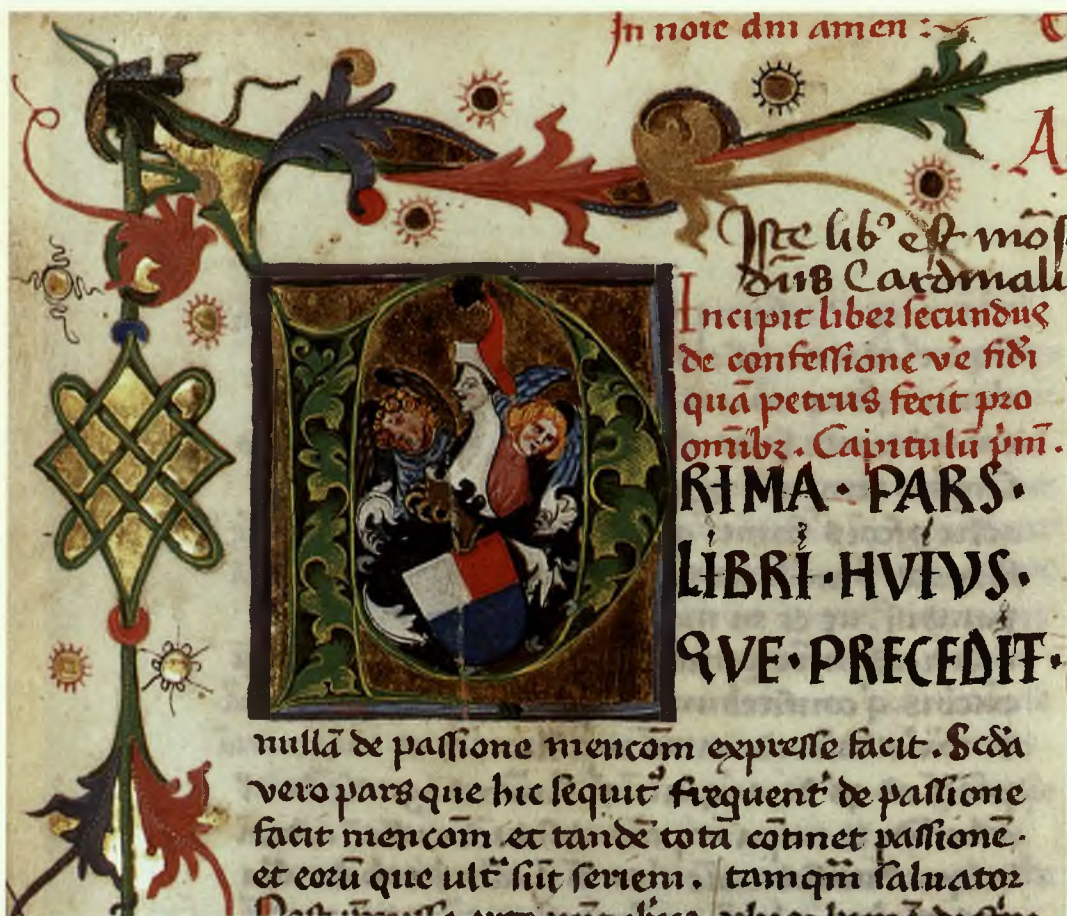 In noīe dn̄i amen :
A
Iste lib᷒ est mōſ
dn̄s Cardinali
Incipit liber ſecundus
de confeſſione v̄e fidei
quā petrus fecit pro
omībꝫ . Capitulū pm̄ .
RIMA · PARS ·
LIBRI · HVIVS ·
QVE · PRECEDIT ·
nullā de paſſione mencōm expreſſe facit . Scd̄a
vero pars que hic ſequit᷑ frequent᷑ de paſſione
facit mencōm et tandē totā cōtinet paſſionē .
et eorū que ult᷑ ſūt ſeriem . tamqm̄ ſaluator